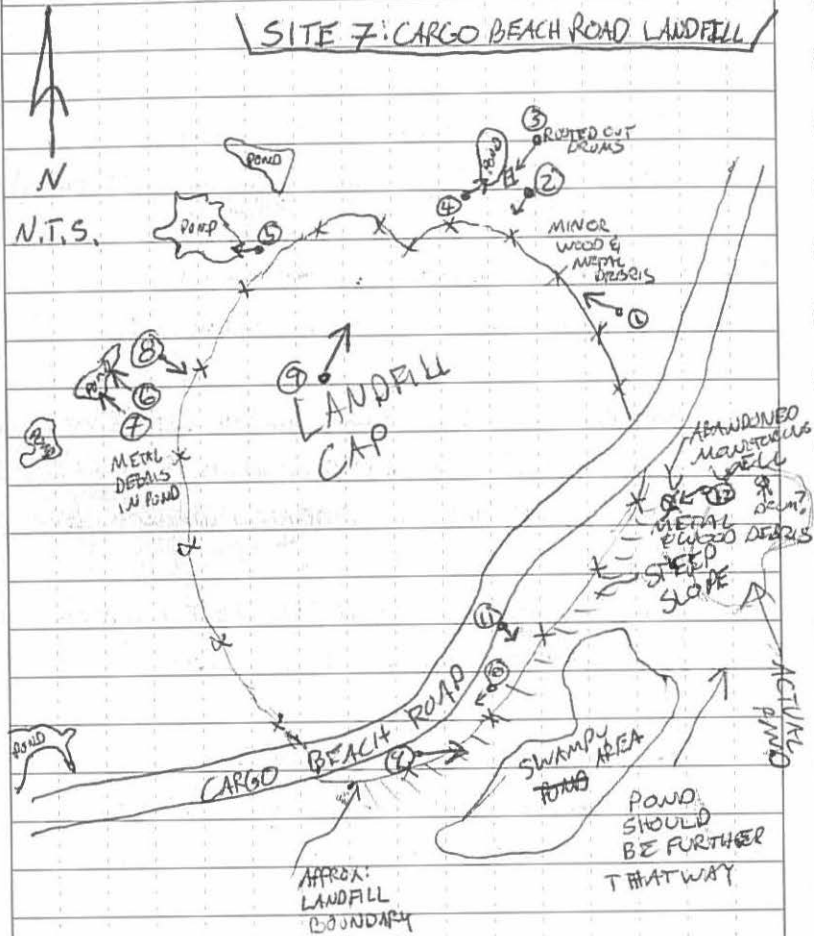 SITE 7: CARGO BEACH ROAD LANDFILL
N
N.T.S.
POND
POND
POND
③
ROTTED OUT
DRUMS
②
④
⑤
MINOR
WOOD &
METAL
DEBRIS
①
⑧
POND
⑥
⑦
METAL
DEBRIS
IN POND
⑨
LANDFILL
CAP
ABANDONED
MONITORING
WELL
⑫
DRUM?
METAL
& WOOD DEBRIS
STEEP
SLOPE
⑪
⑩
⑨
ACTUAL
POND
POND
CARGO BEACH ROAD
SWAMPY AREA
POND
POND
SHOULD
BE FURTHER
THAT WAY
APPROX:
LANDFILL
BOUNDARY